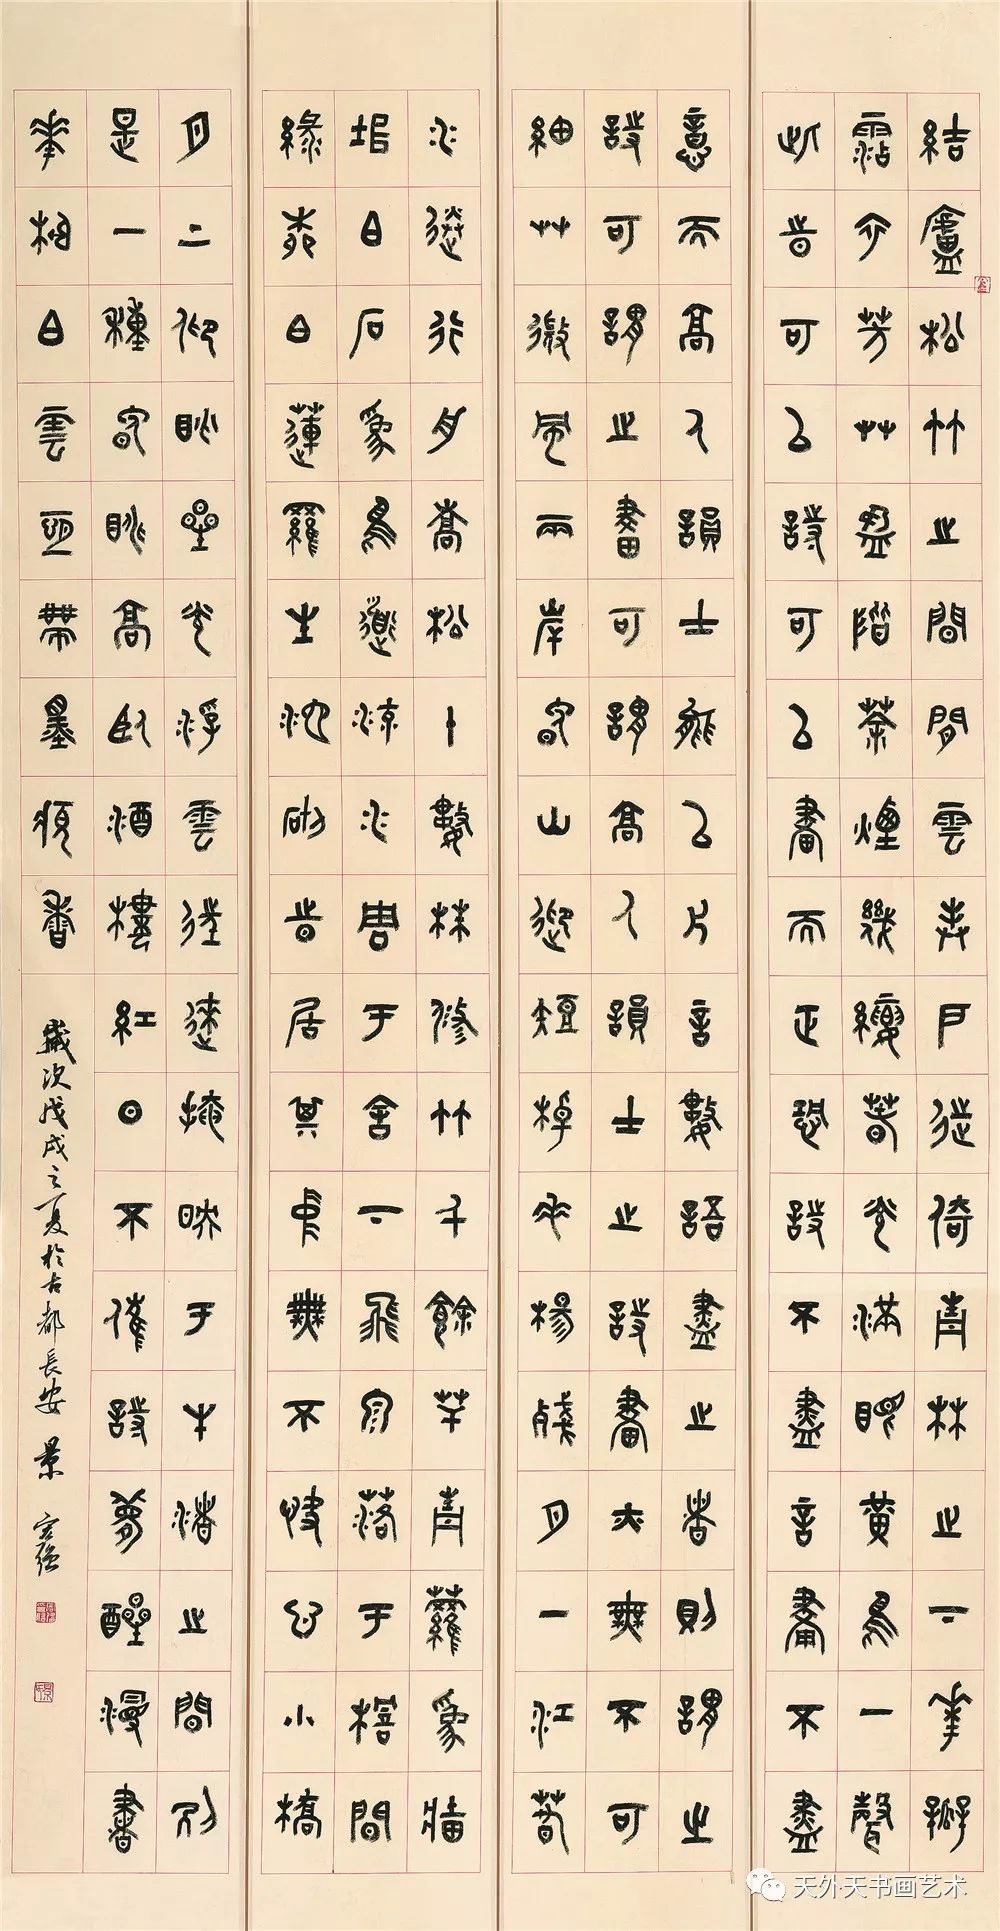 結廬松竹之間閒雲封戶徙倚青林之下花瓣
霑衣芳艸盈階茶煙幾縷春光滿眼黃鳥一聲
此時可以詩可以畫而正恐詩不盡言畫不盡
意而高人韻士能以片言數語盡之者則謂之
詩可謂之畫可謂高人韻士之詩畫亦無不可
細艸微風兩岸晚山迎短棹垂楊殘月一江春
水送行舟喬松十數株修竹千餘竿青蘿為牆
垣白石為鳥道流水周于舍下飛泉落于檐間
綠柳白蓮羅生池砌時居其中無不快心小橋
月下仰眺星光浮雲往來掩映于牛渚之間別
是一種晚眺高臥酒樓紅日不催詩夢醒漫書
花榭白雲恆帶墨痕香
歲次戊戌之夏於古都長安 景
天外天书画艺术